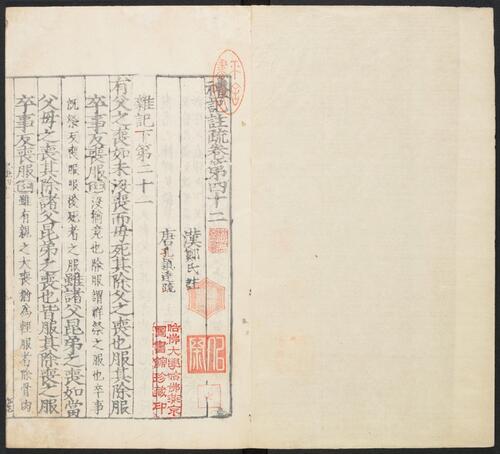 禮記註疏卷第四十二
漢鄭氏註
唐孔穎達疏
雜記下第二十一
有父之喪如未沒喪而母死其除父之喪也服其除服
卒事反喪服 沒猶竟也除服謂祥祭之服也卒事
既祭反喪服服後死者之服雖諸父昆弟之喪如當
父母之喪其除諸父昆弟之喪也皆服其除喪之服
卒事反喪服 雖有親之大喪猶為輕服者除骨肉
哈佛大學哈佛燕京
圖書館珍藏印